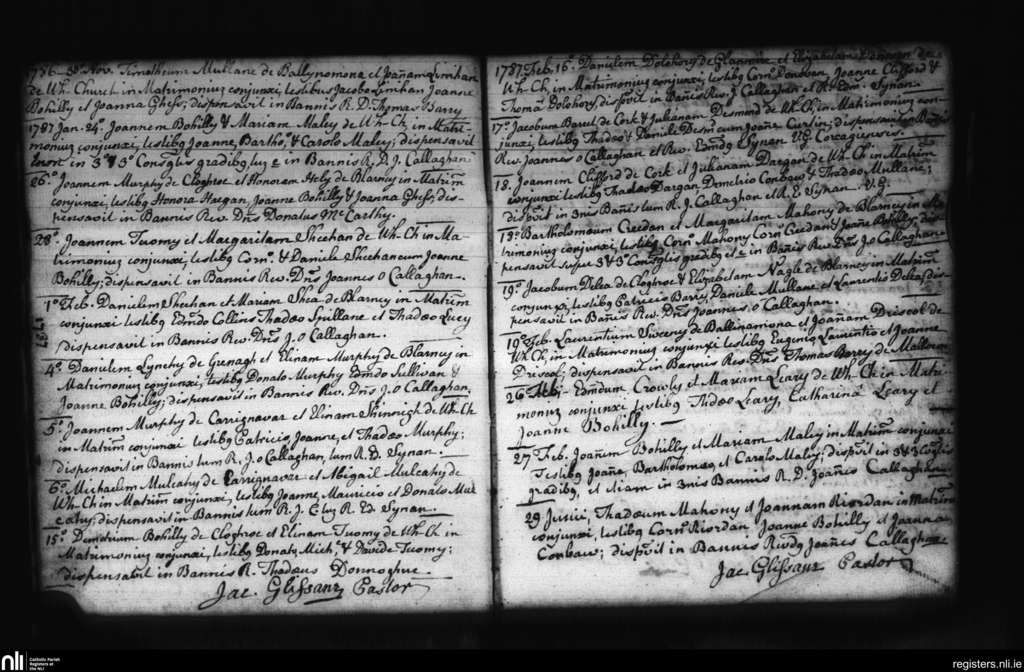 1786 30 Nov. Timotheum Mullane de Ballynomona et Joañam Linihan
de Wh. Church in Matrimoniuz conjunxi, testibus Jacobo Linihan Joanne
Bohilly et Joanna Ghess; dispensavit in Bannis R. D. Thomas Barry
1787 Jan. 24º Joannem Bohilly & Mariam Maley de Wh-Ch. in Matri-
moniuz conjunxi, testibq Joanne, Bartho: & Carolo Maley; dispensavit
in 3º & 3º Consqtis gradibq in Bannis R. D. J. Callaghan
26º Joannem Murphy de Cloghroe et Honoram Hely de Blarney in Matrim
conjunxi testibq Honora Hregan, Joanne Bohilly & Joanna Ghess, dis-
pensavit in Bannis Rev. Dñs Donatus McCarthy.
28º Joannem Tuomy et Margaritam Sheehan de Wh-Ch in Ma-
trimoniuz conjunxi, testibq Corn: & Daniele Sheehan cum Joanne
Bohilly; dispensavit in Bannis Rev. Dñs Joannes O Callaghan.
1º Feb. Danielem Sheehan et Mariam Shea de Blarney in Matrim
conjunxi testibq Edmdo Collins Thadæo Spillane et Thadæo Lucy
dispensavit in Bannis Rev. Dñs J. O Callaghan.
1787
4º Danielem Lynchy de Grenagh et Elinam Murphy de Blarney in
Matrimoniuz conjunxi, testibq Donato Murphy Edmdo Sullivan &
Joanne Bohilly; dispensavit in Bannis Rev. Dñs J. O Callaghan,
5º Joannem Murphy de Carrignavar et Elinam Shinnigh de Wh-Ch
in Matrim conjunxi testibq Patricio, Joanne, et Thadæo Murphy;
dispensavit in Bannis tum R. J. O Callaghan, tum R. Ed. Synan.
6º Michaelem Mulcahy de Carrignavar et Abigail Mulcahy de
Wh-Ch in Matrim conjunxi, testibq Joanne, Mauricio et Donato Mul
cahy; dispensavit in Bannis tum R. J. tum R Ed Synan.
15º Demetrium Bohilly de Cloghroe et Elinam Tuomy de Wh-Ch in
Matrimoniuz conjunxi, testibq Donato, Mich: & Davide Tuomy;
dispensavit in Bannis R. Thadæus Donnoghue.
Jac. Glissanz Pastor
1787. Feb. 16º Danielem Dolohory de Glanmire et Elizabetam de
Wh-Ch. in Matrimoniuz conjunxi, testibq Corn: Donovan, Joanne Clifford &
Thomâ Dolohory, dispvit in Bañis Rev. J. Callaghan et R. Edm: Synan.
17º Jacobum Barret de Cork & Julianam Desmond de Wh. Ch in Matrimoniuz con-
junxi, testibq Thadæo & Daniele Desmd cum Joañe Curtin; dispensavit in Bañis
Rev. Joannes O Callaghan et Rev. Edmdq Synan VG. Corcagienses.
18. Joannem Clifford de Cork et Julianam Dargan de Wh-Ch. in Matrim
conjunxi testibq Thadæo Dargan, Demetrio Conbaw & Thadæo Mullane;
dispvit in 3nis Bañis tum R. J. Callaghan et R. E Synan. V.G.
19º Bartholomæum Creedan et Margaritam Mahony de Blarney in Ma-
trimoniuz conjunxi, testibq Corn: Mahony Corn: Creedan & Joañe Bohilly; dis-
pensavit super 3 & 3º Consqtis gradibq et in Bañis Rev. Dñs J. O Callaghan
19º Jacobum Delea de Cloghroe & Elizabetam Nagle de Blarney in Matrim
conjunxi, testibq Patricio Barry, Daniele Mullane et Laurentio Delea; dis-
pensavit in Bañis Rev. Dñs Joannis O Callaghan.
19 Feb. Laurentium Sweeny de Ballinamona et Joañam Driscol de
Wh. Ch. in Matrimoniuz conjunxi testibq Eugenio, Laurentio et Joanne
Driscol; dispensavit in Bannis Rev. Dñs Thomas Barry de Mallow
26 Feb. Edmdum Crowly et Mariam Leary de Wh-Ch. in Matri-
moniuz conjunxi testibq Thdæo Leary, Catharina Leary et
Joanne Bohilly.
27 Feb. Joañem Bohilly et Mariam Maley in Matrim conjunxi
Testibq Joañe, Bartholomæo, et Carolo Maley; dispvit in 3 & 3 Csqtis
gradibq, et etiam in 3nis Bannis R. D. Joañes Callaghan
29 Thadæum Mahony et Joannam Riordan in Matrim
conjunxi, testibq Corn: Riordan, Joanne Bohilly et Joanna
Conbaw; dispvit in Bannis Rivdq Joañes Callaghan
Jac. Glissanz Pastor
nli
Catholic Parish
Registers at
the NLI
registers.nli.ie